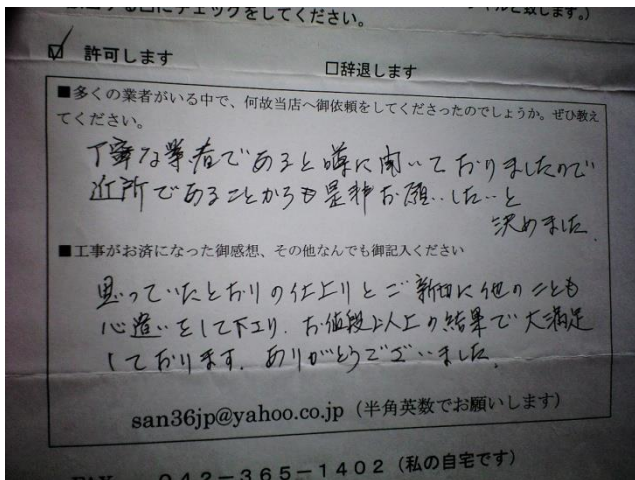 当する口にチェックをしてください。
許可します
□辞退します
■多くの業者がいる中で、何故当店へ御依頼をしてくださったのでしょうか。ぜひ教え
てください。
丁寧な業者であると噂に聞いておりましたので
近所であることからも是非お願いしたいと
決めました。
■工事がお済になった御感想、その他なんでも御記入ください
思っていたとおりの仕上りとご親切に他のことも
心遣いをして下さり、お値段以上の結果で大満足
しております。ありがとうございました。
san36jp@yahoo.co.jp（半角英数でお願いします）
FAX 042－365－1402（私の自宅です）